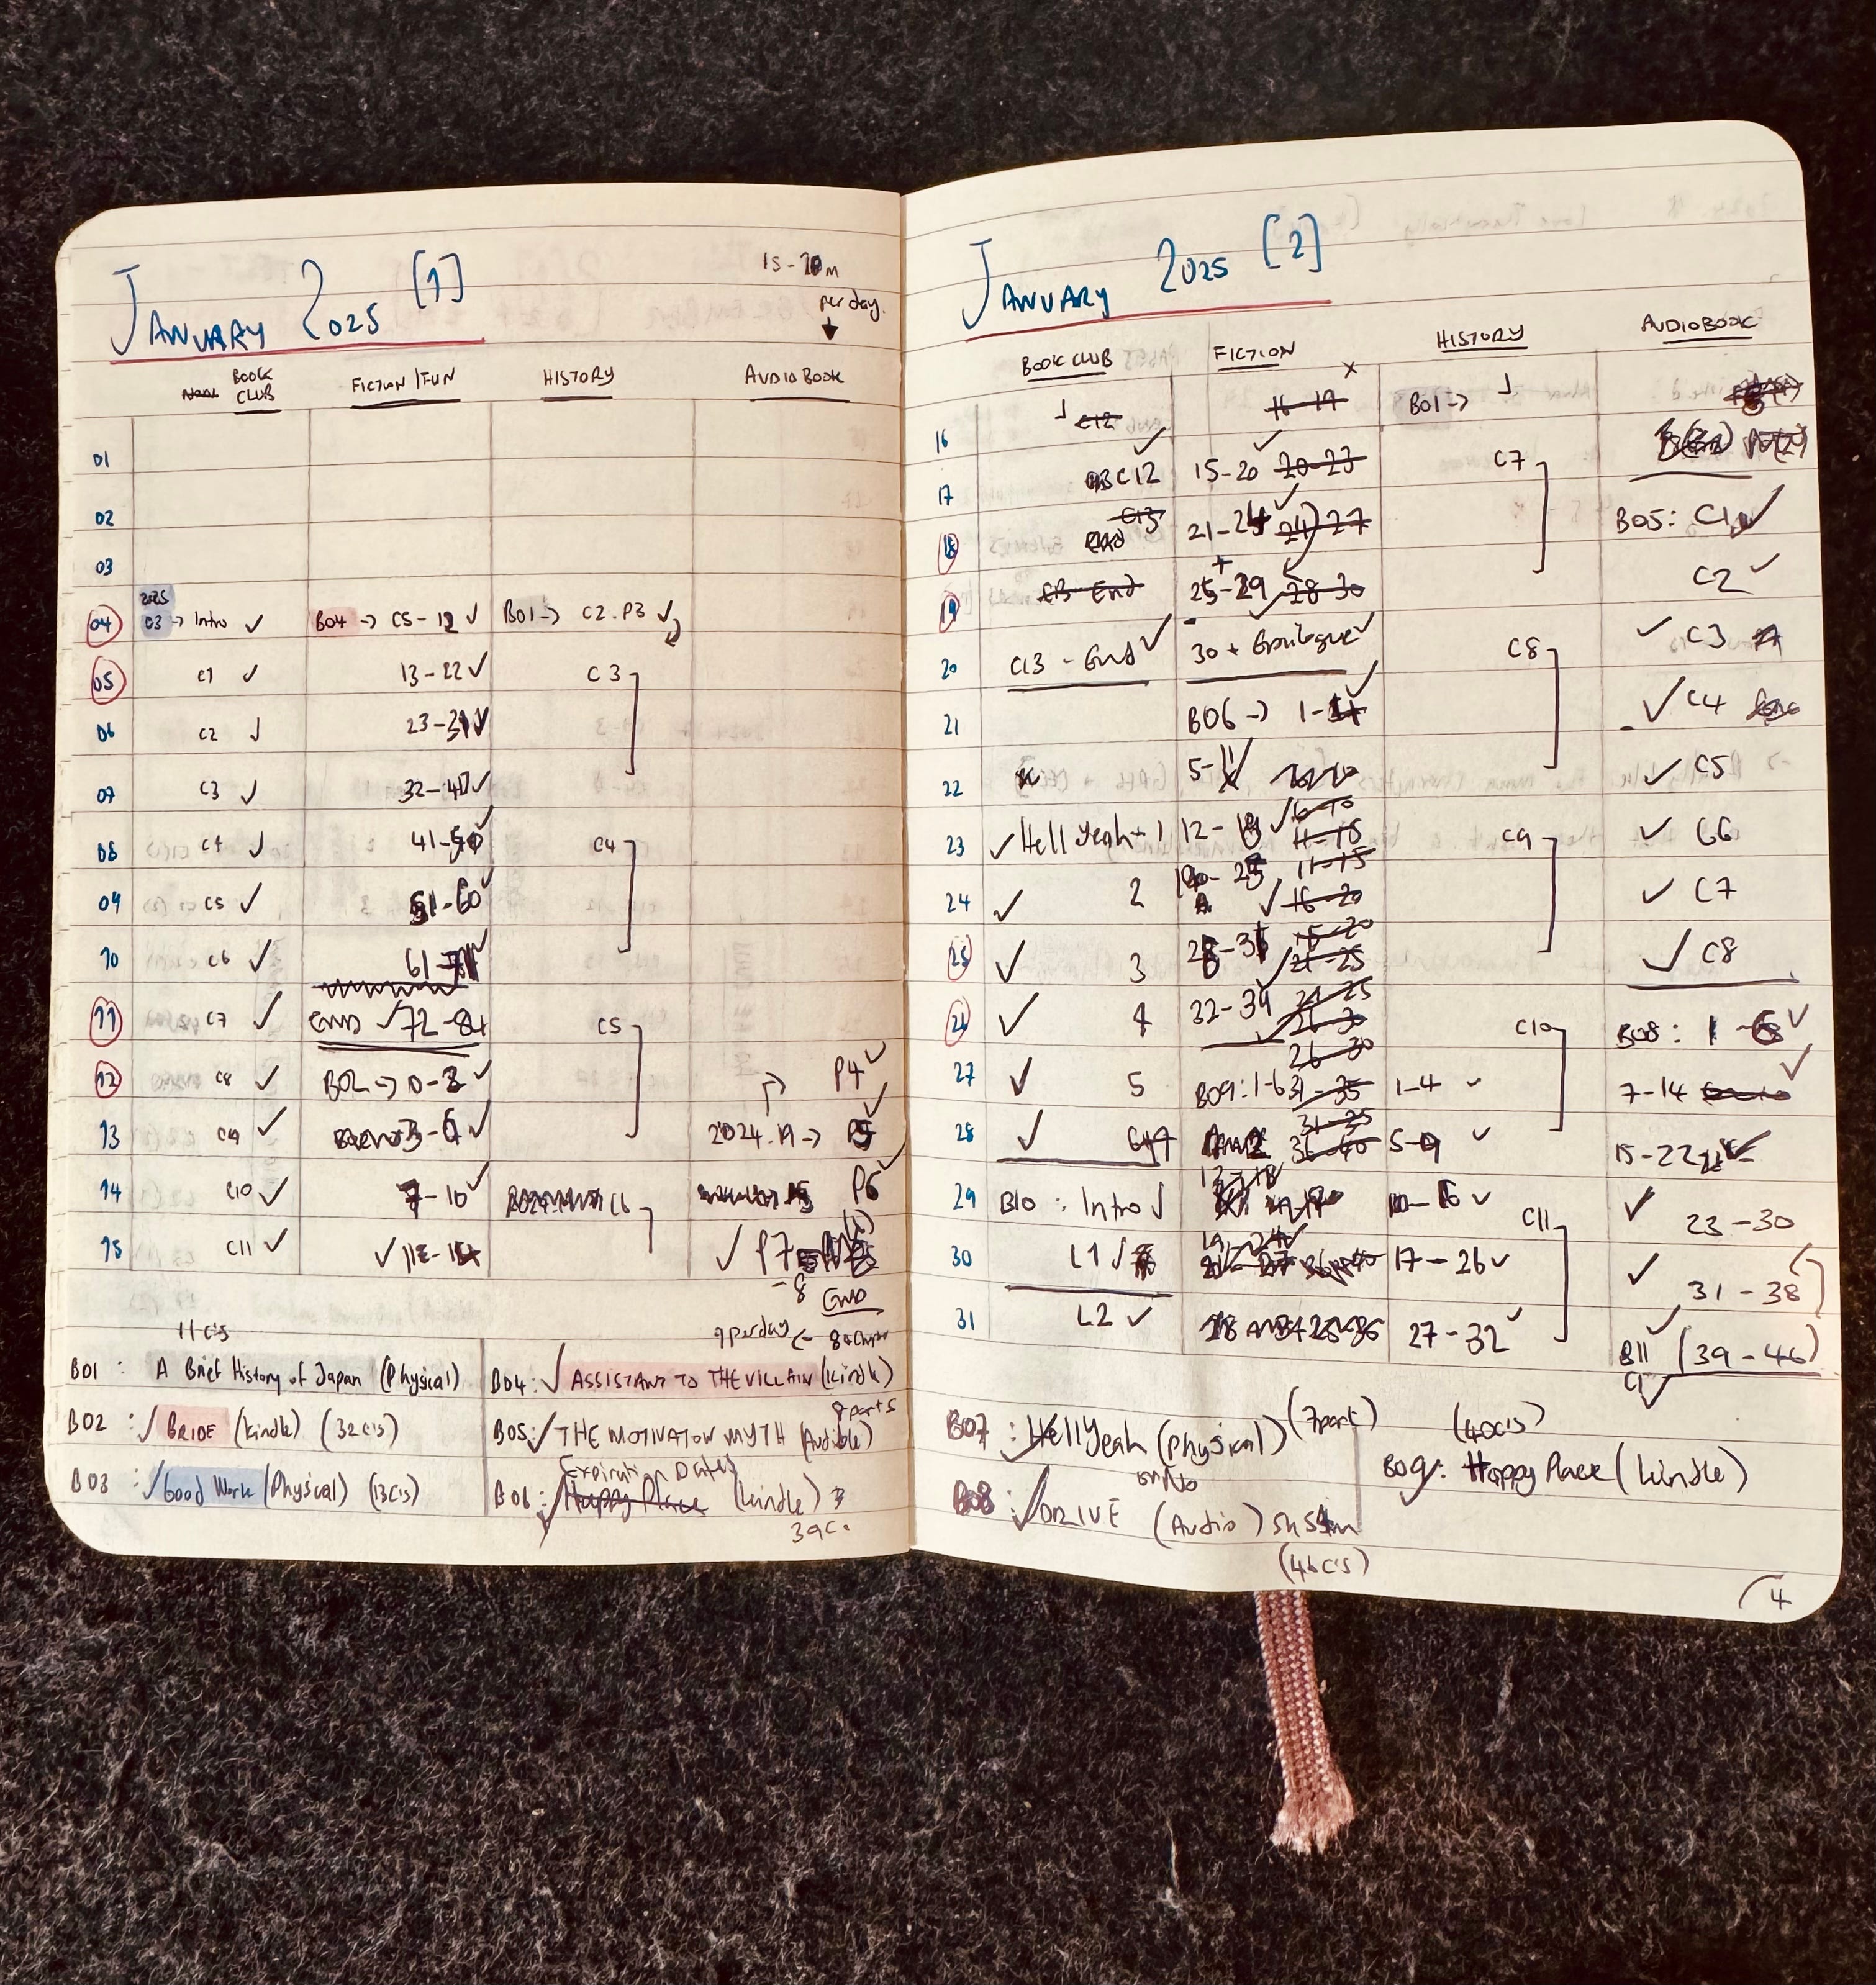 JANUARY 2025 [1]
15-20m
per day.
BOOK CLUB FICTION/FUN HISTORY AUDIOBOOK
01
02
03
04 2025 03 → Intro ✓ B04 → C5-12 ✓ B01 → C2.P3 ✓
05 C1 ✓ 13-22 ✓ C3
06 C2 ✓ 23-31 ✓
07 C3 ✓ 32-40 ✓
08 C4 ✓ 41-50 ✓ C4
09 C5 ✓ 51-60 ✓
10 C6 ✓ 61-71 ✓
11 C7 ✓ END ✓ 72-84 C5
12 C8 ✓ B02 → 0-2 ✓ P4 ✓
13 C9 ✓ 3-6 ✓ 2024.19 → P5 ✓
14 C10 ✓ 7-10 ✓ C6 P6 ✓
15 C11 ✓ ✓ 11-14 ✓ P7
-8 END
11 C's 9 per day ← 84 Chapter
B01 : A Brief History of Japan (Physical)
B02 : ✓ BRIDE (kindle) (32c's)
B03 : ✓ Good Work (Physical) (13c's)
B04 : ✓ ASSISTANT TO THE VILLAIN (kindle)
8 parts
B05 : ✓ THE MOTIVATION MYTH (Audible)
Expiration Dates
B06 : ✓ Happy Place (kindle)
39c.
JANUARY 2025 [2]
BOOK CLUB FICTION HISTORY AUDIOBOOK
16 C12 16-19 x B01 →
17 C12 ✓ 15-20 ✓ 20-23 C7
18 C13 End 21-24 ✓ 24-27 B05: C1 ✓
19 C13-End 25-29 ✓ 28-30 C2 ✓
20 C13-End ✓ 30 + Epilogue ✓ C8 ✓ C3
21 B06 → 1-4 ✓ ✓ C4
22 5-11 ✓ ✓ C5
23 ✓ Hell Yeah - 1 12-18 ✓ 6-10 11-15 C9 ✓ C6
24 ✓ 2 ✓ 11-15 16-20 ✓ C7
25 ✓ 3 ✓ 15-20 21-25 ✓ C8
26 ✓ 4 32-39 ✓ 21-25 26-30 C10 B08: 1-6 ✓
27 ✓ 5 B09: 1-6 26-30 31-35 1-4 ✓ 7-14 ✓
28 ✓ 31-35 36-40 5-9 ✓ 15-22 ✓
29 B10 : Intro ✓ 10-16 ✓ C11 ✓ 23-30
30 L1 ✓ 17-26 ✓ ✓ 31-38
31 L2 ✓ 27-32 ✓ ✓ (39-46)
B11
C1 ✓
B07 : ✓ Hell Yeah (Physical) (7part)
or No
B08 : ✓ DRIVE (Audio) 5h 54m
(46c's)
(40c's)
B09 : Happy Place (kindle)
4